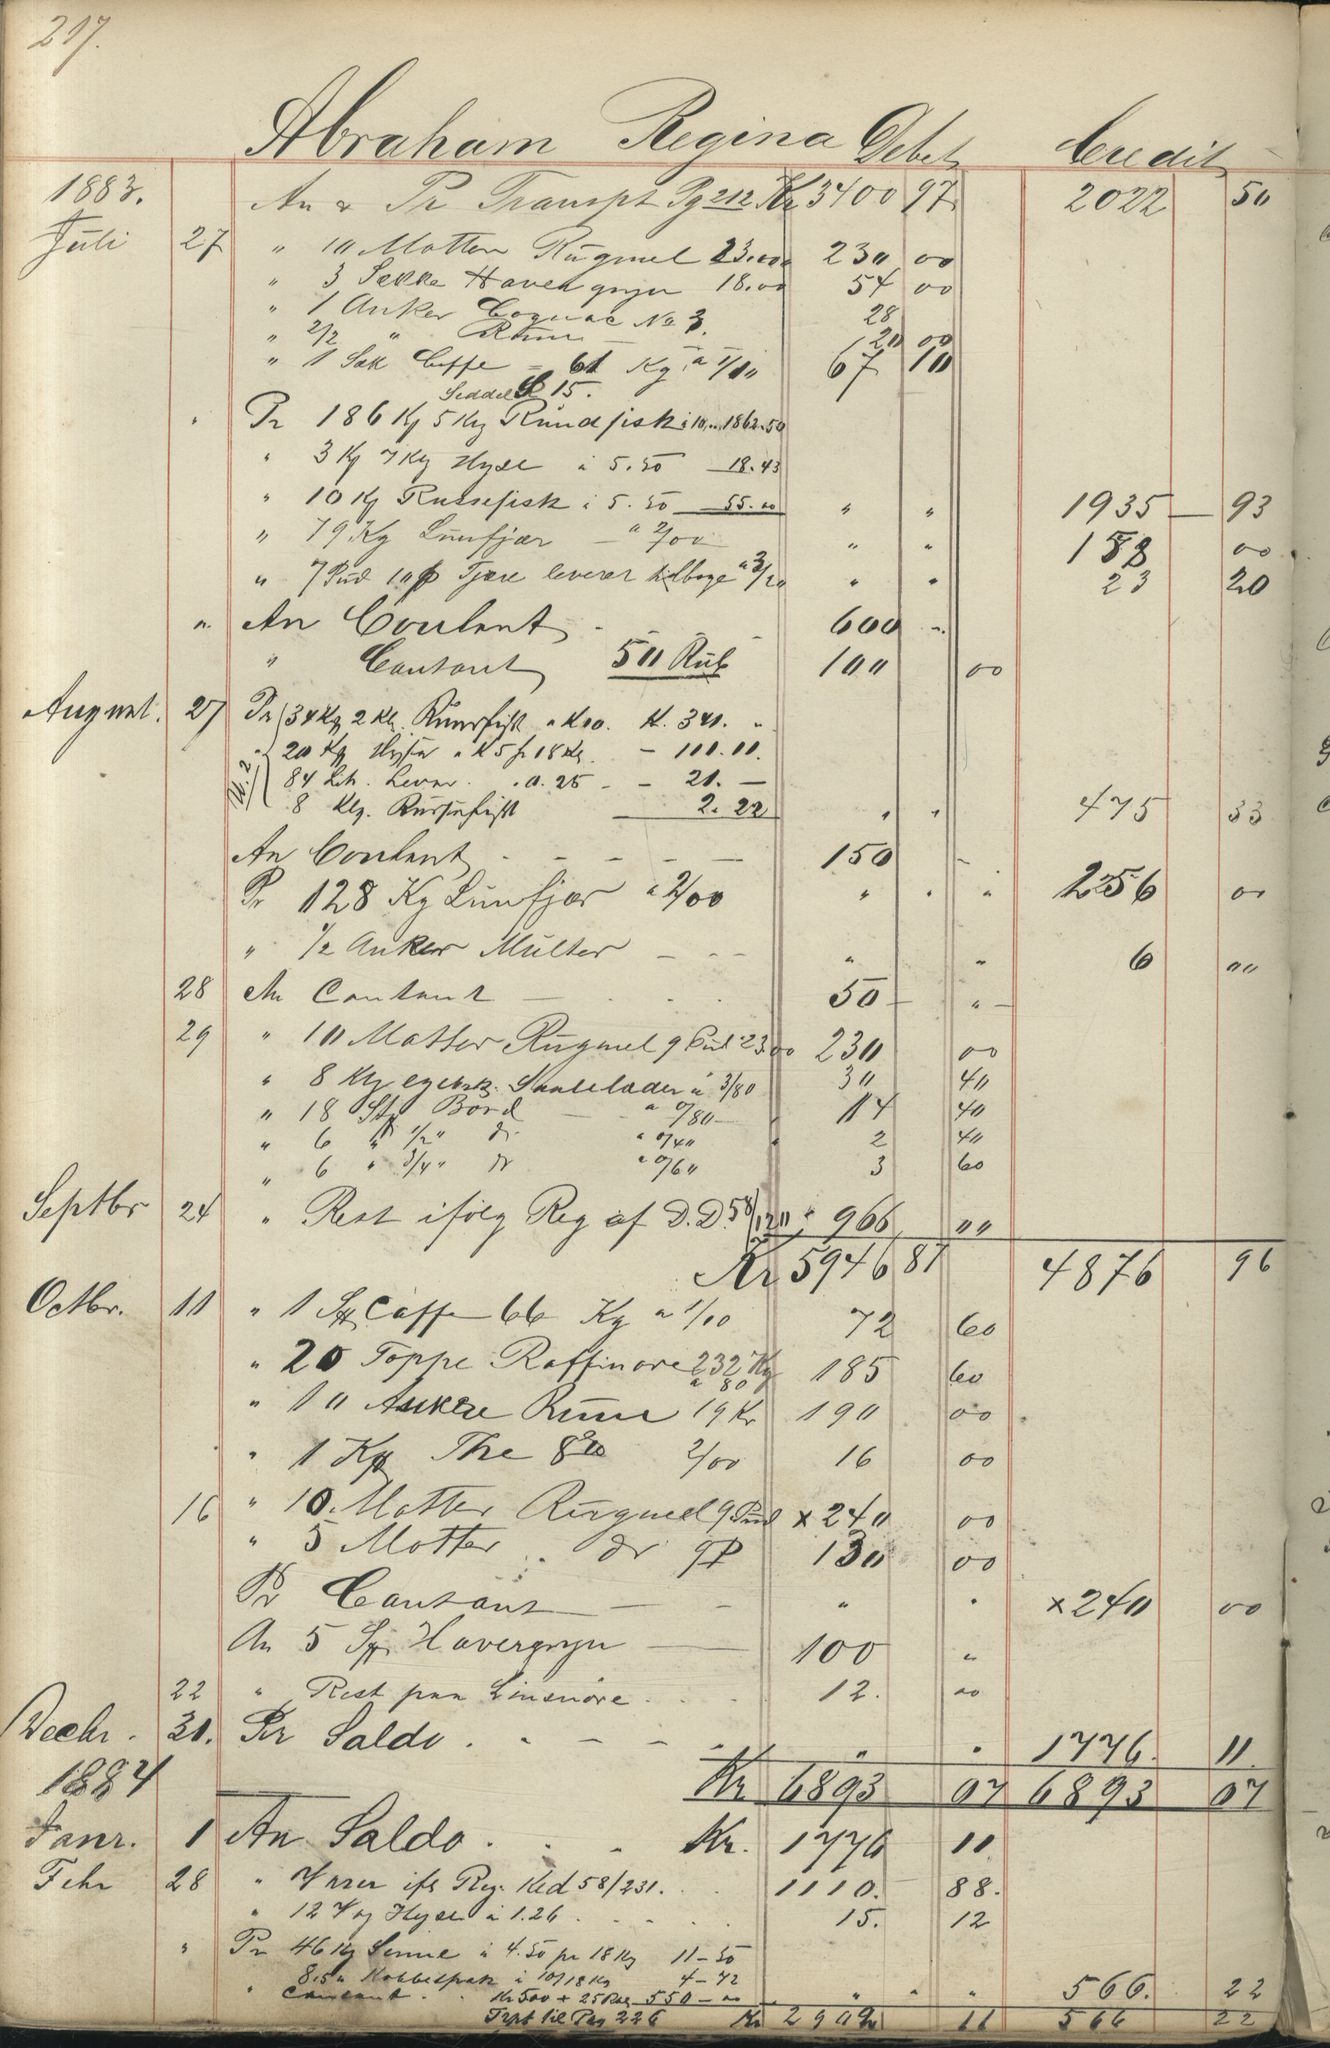 217.
Abraham Regina Debet Credit
1883. An & Pr Transpt Pg 212 Kr 3400 97 2022 50
Juli 27 " 10 Matten Rugmel 23.00 230 00
" 3 Sække Havengryn 18.00 54 00
" 1 Anker Cognac No 3. 28
" 2/2 " Rum 20 00
" 1 Sæk Caffe = 61 Kg. a 1/10 67 10
Seddel 15.
" Pr 186 Kg 5 Kg Rundfisk a 10,.. 1862.50
" 3 Kg 7 Kg Hyse a 5.50 18.43
" 10 Kg Russefisk a 5.50 55.00 " " 1935 — 93
" 79 Kg Luufjær — a 2/00 " " 158 00
" 7 Pud 10 p Tjære leveret tilbage a 3/20 " " 23 20
" An Contant - - - 600 -
" Contant 50 Rub 100 00
August. 27 Pr 34 Kg 2 Kg. Rundfisk a K10. K. 341. "
20 Kg Hyse a K 5 pr 18 Kg. - 100.00.
84 Lit. Lever. a. 25 - - 21. —
No. 2
8 Klg. Russefisk 2. 22 " " 475 33
An Contant - - - - - 150 -
Pr 128 Kg Luufjær a 2/00 " " " 256 00
" 1/2 Anker Multer - - - " " 6 00
28 An Contant - . . . 50 - " -
29 " 10 Matter Rugmel 9 Pud a 23.00 230 00
" 8 Klg egebk. Saalelæder a 3/80 30 40
" 18 Stk Bord — a 0/80 - 14 40
" 6 " 1/2" do a 0/40 " 2 40
" 6 " 3/4" do a 0/60 3 60
Septbr 24 " Rest ifølg Reg af D.D. 58/120 " 966 00
Kr 5946 87 4876 96
Octbr. 11 " 1 Sk Caffe 66 Kg a 1/10 72 60
" 20 Toppe Raffinore 232 Kg a 80 185 60
" 10 Ankere Rum 19 Kr 190 00
" 1 Kp The 8 2/00 16 00
16 " 10 Matter Rugmel 9 Pud x 240 00
" 5 Matter do 9 P 130 00
Pr Contant — — - " " x 240 00
An 5 Sk Havergryn — 100 "
22 " Rest paa Linsnøre . . . 12. 00
Decbr. 31. Pr Saldo . - - - - " " 1776. 11.
Kr 6893 07 6893 07
1884
Janr. 1 An Saldo . . . Kr. 1776 11
Febr 28 " Varer ifl Reg. Ked 58/231. . . 1110. 88.
" 12 Vog Hyse a 1.26 . . . . . 15. 12
" Pr 46 Kg Senne a 4.50 pr 18 Kg 11-50
8.5 Kobbespæk a 10/18 Kg 4-72
" Contant . . Kr 500 + 25 Rub 550-00 " " " 566. 22
Trpt til Pag 226 Kr 2902 11 566 22